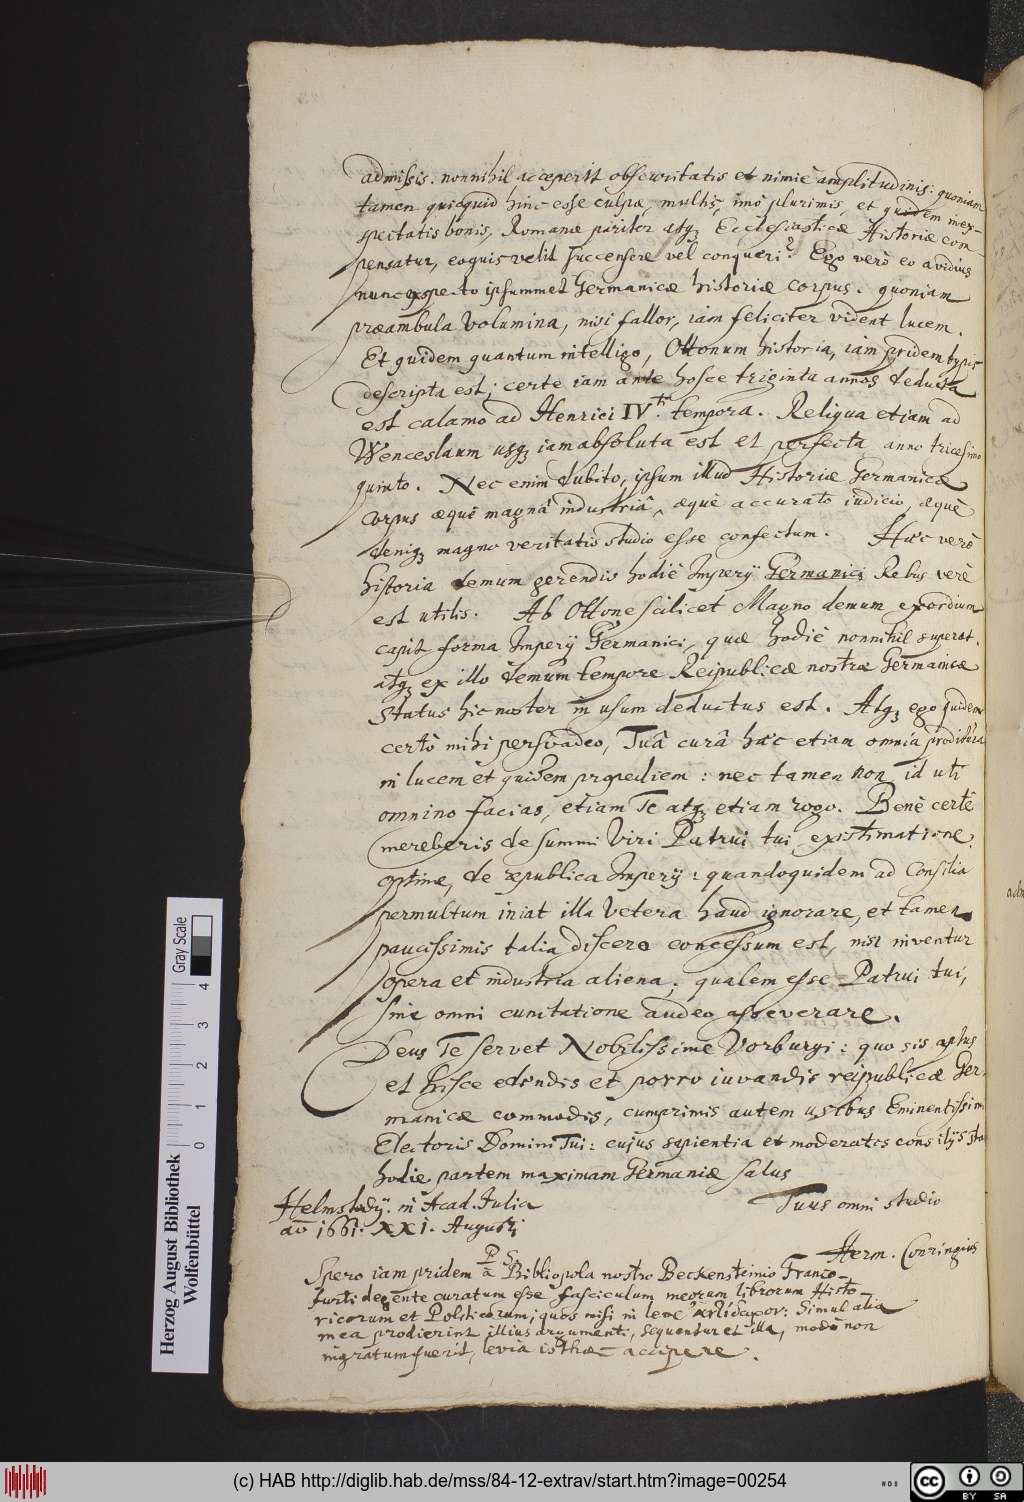 admissis. nonnihil acceperit obscuritatis et nimiè amplitudinis: quoniam
tamen quicquid hinc esse culpae, multis, imò plurimis, et quidem inex-
spectatis bonis, Romanae pariter atq; Ecclesiasticae Historiae com-
pensatur, eoquis velit succensere vel conqueri? Ego verò eo avidius
nunc exspecto ipsummet Germanicae historiae corpus. quoniam
praeambula volumina, nisi fallor, iam feliciter vident lucem.
Et quidem quantum intelligo, Ottonum historia, iam pridem typis
descripta est; certe iam ante hosce triginta annos deducta
est calamo ad Henrici IV.ti tempora. Reliqua etiam ad
Wenceslaum usq; iam absoluta est et perfecta anno tricesimo
quinto. Nec enim dubito, ipsum illud Historiae Germanicae
corpus aequè magnâ industriâ, aequè accurato iudicio, aequè
deniq; magno veritatis studio esse confectum. Haec verò
historia demum gerendis hodiè Imperij Germanici Rebus verè
est utilis. Ab Ottone scilicet Magno demum exordium
capit forma Imperij Germanici, quae hodiè nonnihil superat.
atq; ex illo demum tempore Reipublicae nostrae Germanicae
Status hic noster in usum deductus est. Atq; ego quidem
certò mihi persvadeo, Tuâ curâ haec etiam omnia proditura
in lucem et quidem propediem: nec tamen non id uti
omnino facias, etiam Te atq; etiam rogo. Benè certè
mereberis de summi Viri Patrui tui existimatione,
optime, de republica Imperij: quandoquidem ad Consilia
permultum iniat illa vetera haud ignorare, et tamen
paucissimis talia discere concessum est, nisi inventur
opera et industria aliena, qualem esse Patrui tui,
sine omni cunctatione audeo asseverare.
Deus Te servet Nobilissime Vorburgi: quo sis aptus
et hisce edendis et porro iuvandis reipublicae Ger-
manicae commodis, cumprimis autem usibus Eminentissimi
Electoris Domini Tui: cujus sapientia et moderatis consilijs sta
hodie partem maximam Germaniae salus
Helmstadij. in Acad. Julia
aõ 1661. XXI. Augusti
Tuus omni studio
Herm. Conringius
P. S.
Spero iam pridem à Bibliopola nostro Beckensteinio Franco-
furti degente curatum esse fasciculum meorum librorum Histo-
ricorum et Politicorum; quos misi in leve ἀντίδωρον: Simul alia
mea prodierint illius argumenti, sequentur et illa, modò non
ingratum fuerit, levia isthaec accipere.
Herzog August Bibliothek
Wolfenbüttel
Gray Scale
0 1 2 3 4
(c) HAB http://diglib.hab.de/mss/84-12-extrav/start.htm?image=00254
WDB
cc BY SA